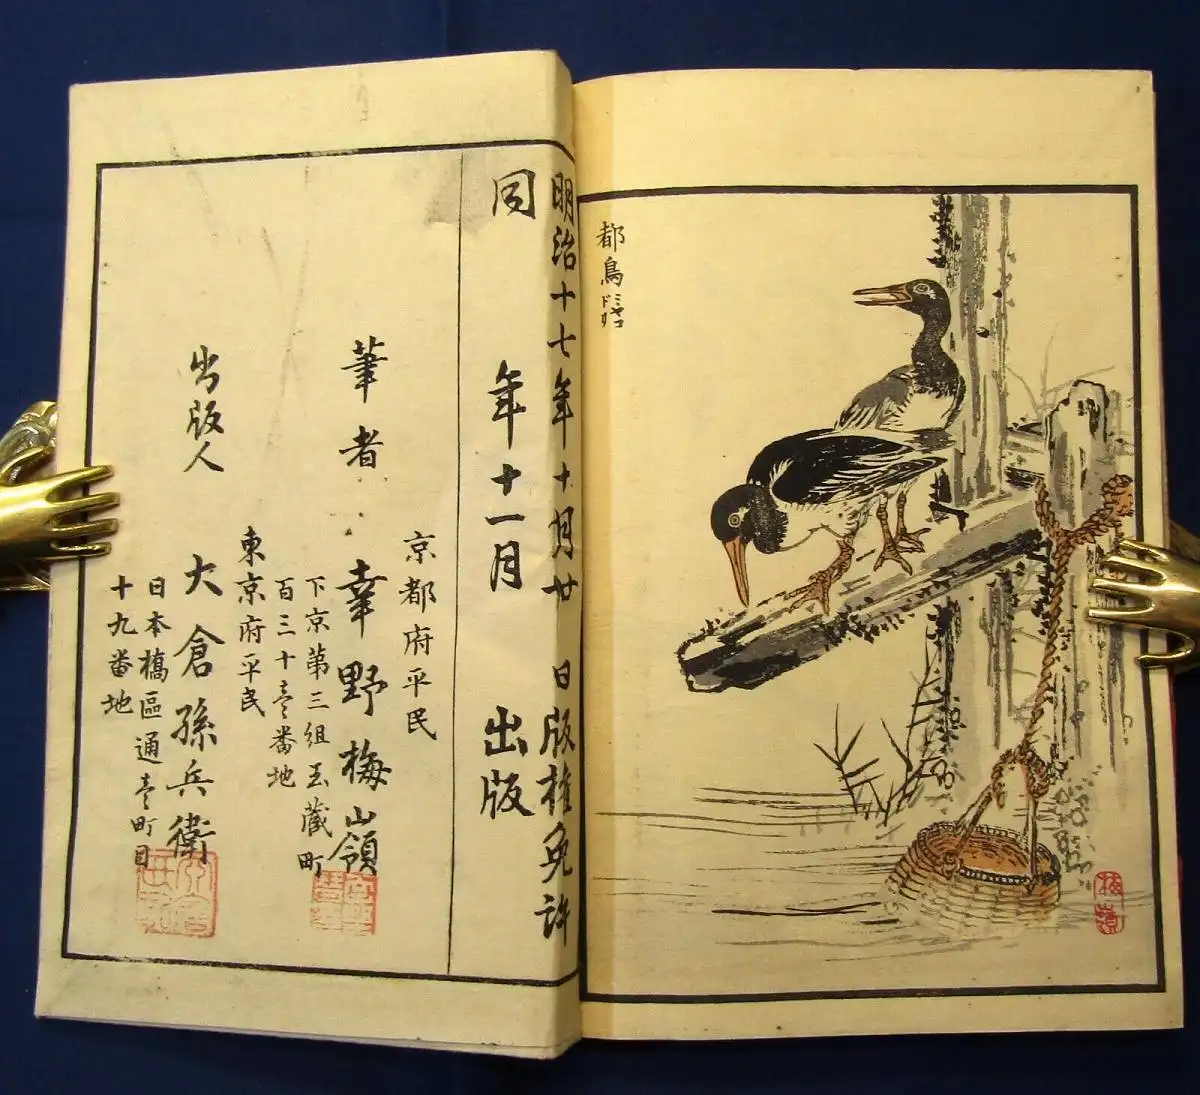 都鳥
ミヤコ
ドリ
梅嶺
明治十七年十月廿 日版権免許
同 年十一月 出版
京都府平民
筆者 幸野梅嶺
下京第三組玉蔵町
百三十壱番地
東京府平民
出版人 大倉孫兵衛
日本橋區通壱町目
十九番地